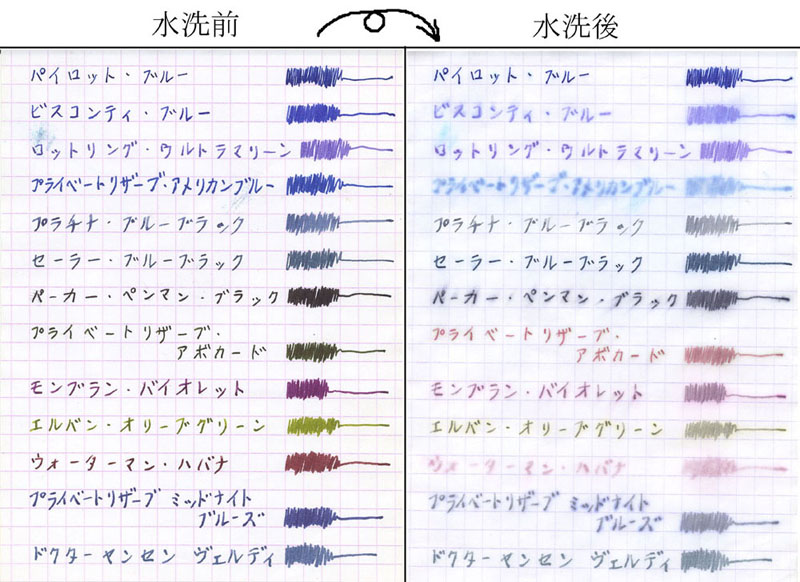 水洗前
水洗後
パイロット・ブルー
ビスコンティ・ブルー
ロットリング・ウルトラマリーン
プライベートリザーブ・アメリカンブルー
プラチナ・ブルーブラック
セーラー・ブルーブラック
パーカー・ペンマン・ブラック
プライベートリザーブ・
アボカード
モンブラン・バイオレット
エルバン・オリーブグリーン
ウォーターマン・ハバナ
プライベートリザーブ ミッドナイト
ブルーズ
ドクターヤンセン ヴェルディ
パイロット・ブルー
ビスコンティ・ブルー
ロットリング・ウルトラマリーン
プライベートリザーブ・アメリカンブルー
プラチナ・ブルーブラック
セーラー・ブルーブラック
パーカー・ペンマン・ブラック
プライベートリザーブ・
アボカード
モンブラン・バイオレット
エルバン・オリーブグリーン
ウォーターマン・ハバナ
プライベートリザーブ ミッドナイト
ブルーズ
ドクターヤンセン ヴェルディ